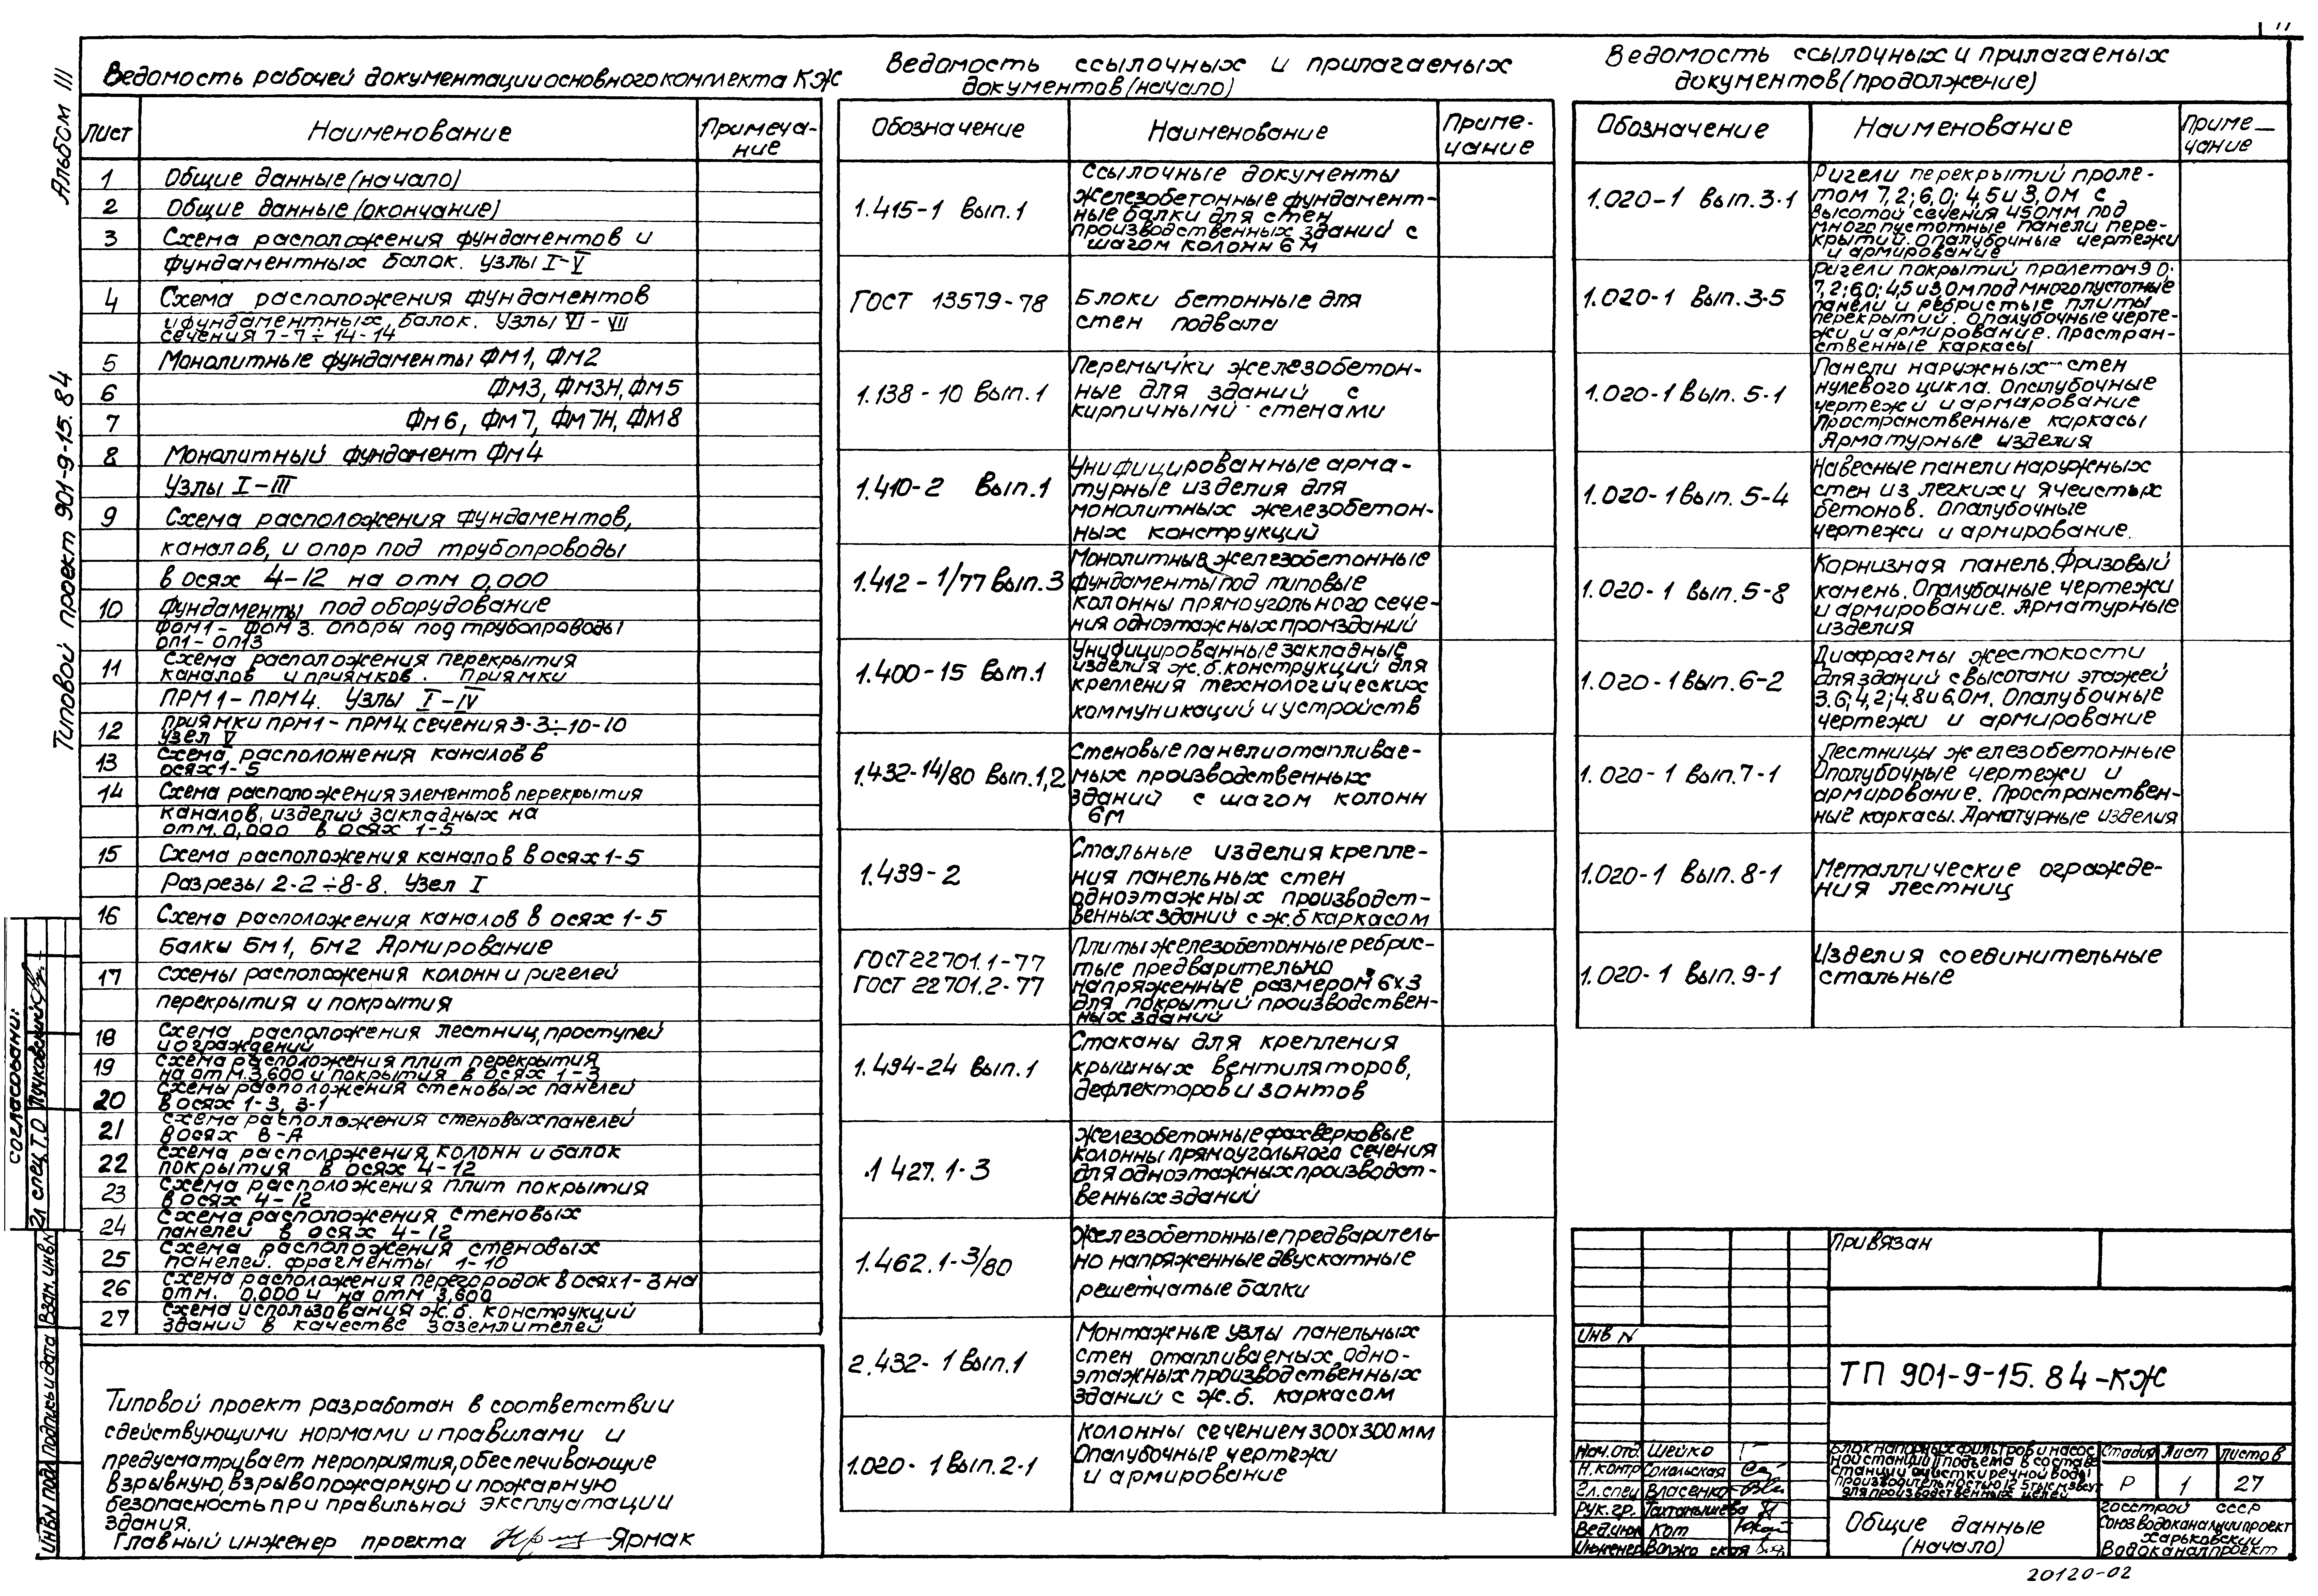 11
Альбом III
Типовой проект 901-9-15.84
Ведомость рабочей документации основного комплекта КЖ
Лист
Наименование
Примеча-
ние
1 Общие данные (начало)
2 Общие данные (окончание)
3 Схема расположения фундаментов и
фундаментных балок. Узлы I-V
4 Схема расположения фундаментов
и фундаментных балок. Узлы VI-VII
сечения 7-7÷14-14
5 Монолитные фундаменты ФМ1, ФМ2
6 ФМ3, ФМ3Н, ФМ5
7 ФМ6, ФМ7, ФМ7Н, ФМ8
8 Монолитный фундамент ФМ4
Узлы I-III
9 Схема расположения фундаментов,
каналов, и опор под трубопроводы
в осях 4-12 на отм 0,000
10 Фундаменты под оборудование
ФОМ1-ФОМ3. Опоры под трубопроводы
ОП1-ОП13
11 Схема расположения перекрытия
каналов и приямков. Приямки
ПРМ1-ПРМ4. Узлы I-IV
12 Приямки ПРМ1-ПРМ4. сечения 3-3÷10-10
Узел V
13 Схема расположения каналов в
осях 1-5
14 Схема расположения элементов перекрытия
каналов, изделий закладных на
отм. 0,000 в осях 1-5
15 Схема расположения каналов в осях 1-5
Разрезы 2-2÷8-8. Узел I
16 Схема расположения каналов в осях 1-5
Балки БМ1, БМ2 Армирование
17 Схемы расположения колонн и ригелей
перекрытия и покрытия
18 Схема расположения лестниц, проступей
и ограждений
19 Схема расположения плит перекрытия
на отм. 3,600 и покрытия в осях 1-3
20 Схемы расположения стеновых панелей
в осях 1-3, 3-1
21 Схема расположения стеновых панелей
в осях В-А
22 Схема расположения колонн и балок
покрытия в осях 4-12
23 Схема расположения плит покрытия
в осях 4-12
24 Схема расположения стеновых
панелей в осях 4-12
25 Схема расположения стеновых
панелей. Фрагменты 1-10
26 Схема расположения перегородок в осях 1-3 на
отм. 0,000 и на отм 3,600
27 Схема использования ж.б. конструкций
зданий в качестве заземлителей
Типовой проект разработан в соответствии
с действующими нормами и правилами и
предусматривает мероприятия, обеспечивающие
взрывную, взрывопожарную и пожарную
безопасность при правильной эксплуатации
здания.
Главный инженер проекта Ярмак
Ведомость ссылочных и прилагаемых
документов (начало)
Обозначение
Наименование
Приме-
чание
Ссылочные документы
1.415-1 Вып.1
Железобетонные фундамент-
ные балки для стен
производственных зданий с
шагом колонн 6 м
ГОСТ 13579-78
Блоки бетонные для
стен подвала
1.138-10 Вып.1
Перемычки железобетон-
ные для зданий с
кирпичными стенами
1.410-2 Вып.1
Унифицированные арма-
турные изделия для
монолитных железобетон-
ных конструкций
1.412-1/77 Вып.3
Монолитные железобетонные
фундаменты под типовые
колонны прямоугольного сече-
ния одноэтажных промзданий
1.400-15 Вып.1
Унифицированные закладные
изделия ж.б. конструкций для
крепления технологических
коммуникаций и устройств
1.432-14/80 Вып.1,2
Стеновые панели отапливае-
мых производственных
зданий с шагом колонн
6м
1.439-2
Стальные изделия крепле-
ния панельных стен
одноэтажных производст-
венных зданий с ж.б каркасом
ГОСТ 22701.1-77
ГОСТ 22701.2-77
Плиты железобетонные ребрис-
тые предварительно
напряженные размером 6х3
для покрытий производствен-
ных зданий
1.494-24 Вып.1
Стаканы для крепления
крышных вентиляторов,
дефлекторов и зонтов
.1 427.1-3
Железобетонные фахверковые
колонны прямоугольного сечения
для одноэтажных производст-
венных зданий
1.462.1-3/80
Железобетонные предваритель-
но напряженные двускатные
решетчатые балки
2.432-1 Вып.1
Монтажные узлы панельных
стен отапливаемых одно-
этажных производственных
зданий с ж.б. каркасом
1.020-1 Вып.2-1
Колонны сечением 300х300мм
Опалубочные чертежи
и армирование
Ведомость ссылочных и прилагаемых
документов (продолжение)
Обозначение
Наименование
Приме-
чание
1.020-1 Вып.3-1
Ригели перекрытий проле-
том 7,2; 6,0; 4,5 и 3,0м с
высотой сечения 450мм под
многопустотные панели пере-
крытий. Опалубочные чертежи
и армирование
1.020-1 Вып.3-5
Ригели покрытий пролетом 9 0;
7,2; 6,0; 4,5 и 3,0м под многопустотные
панели и ребристые плиты
перекрытий. Опалубочные черте-
жи и армирование. Простран-
ственные каркасы
1.020-1 Вып. 5-1
Панели наружных стен
нулевого цикла. Опалубочные
чертежи и армирование
Пространственные каркасы
Арматурные изделия
1.020-1 Вып. 5-4
Навесные панели наружных
стен из легких и ячеистых
бетонов. Опалубочные
чертежи и армирование.
1.020-1 Вып.5-8
Карнизная панель. Фризовый
камень. Опалубочные чертежи
и армирование. Арматурные
изделия
1.020-1 Вып.6-2
Диафрагмы жесткости
для зданий с высотами этажей
3.6; 4,2; 4.8 и 6.0м. Опалубочные
чертежи и армирование
1.020-1 Вып.7-1
Лестницы железобетонные
Опалубочные чертежи и
армирование. Пространствен-
ные каркасы. Арматурные изделия
1.020-1 Вып.8-1
Металлические огражде-
ния лестниц
1.020-1 Вып.9-1
Изделия соединительные
стальные
Привязан
Инв N
ТП 901-9-15.84-КЖ
Нач.отд Шейко
Н.контр Сокольская
Гл.спец Власенко
Рук.гр.
Вед.инж Кот
Инженер
Блок напорных фильтров и насос
ной станции II подъема в составе
станции очистки речной воды
производительностью 12 5 тыс м3/сут
для производственных целей
Стадия Лист Листов
Р 1 27
Общие данные
(начало)
Госстрой СССР
Союзводоканалниипроект
Харьковский
Водоканалпроект
20120-02
Согласовано:
Гл спец Т.О
Взам.инв.N
Подпись и дата
Инв.N подл